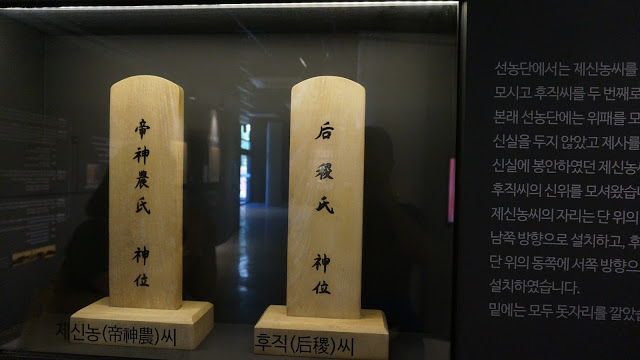 帝神農氏 神位
后稷氏 神位
제신농(帝神農)씨
후직(后稷)씨
선농단에서는 제신농씨를
모시고 후직씨를 두 번째로
본래 선농단에는 위패를 모
신실을 두지 않았고 제사를
신실에 봉안하였던 제신농
후직씨의 신위를 모셔왔습니
제신농씨의 자리는 단 위의
남쪽 방향으로 설치하고, 후
단 위의 동쪽에 서쪽 방향으
설치하였습니다.
밑에는 모두 돗자리를 깔았습